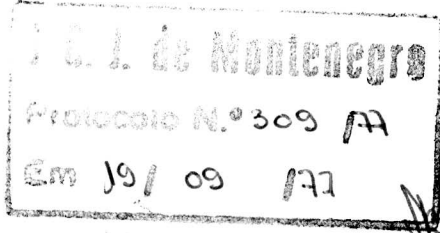 J. C. J. de Montenegro
Protocolo N.º 309 /77
Em 19/ 09 /77